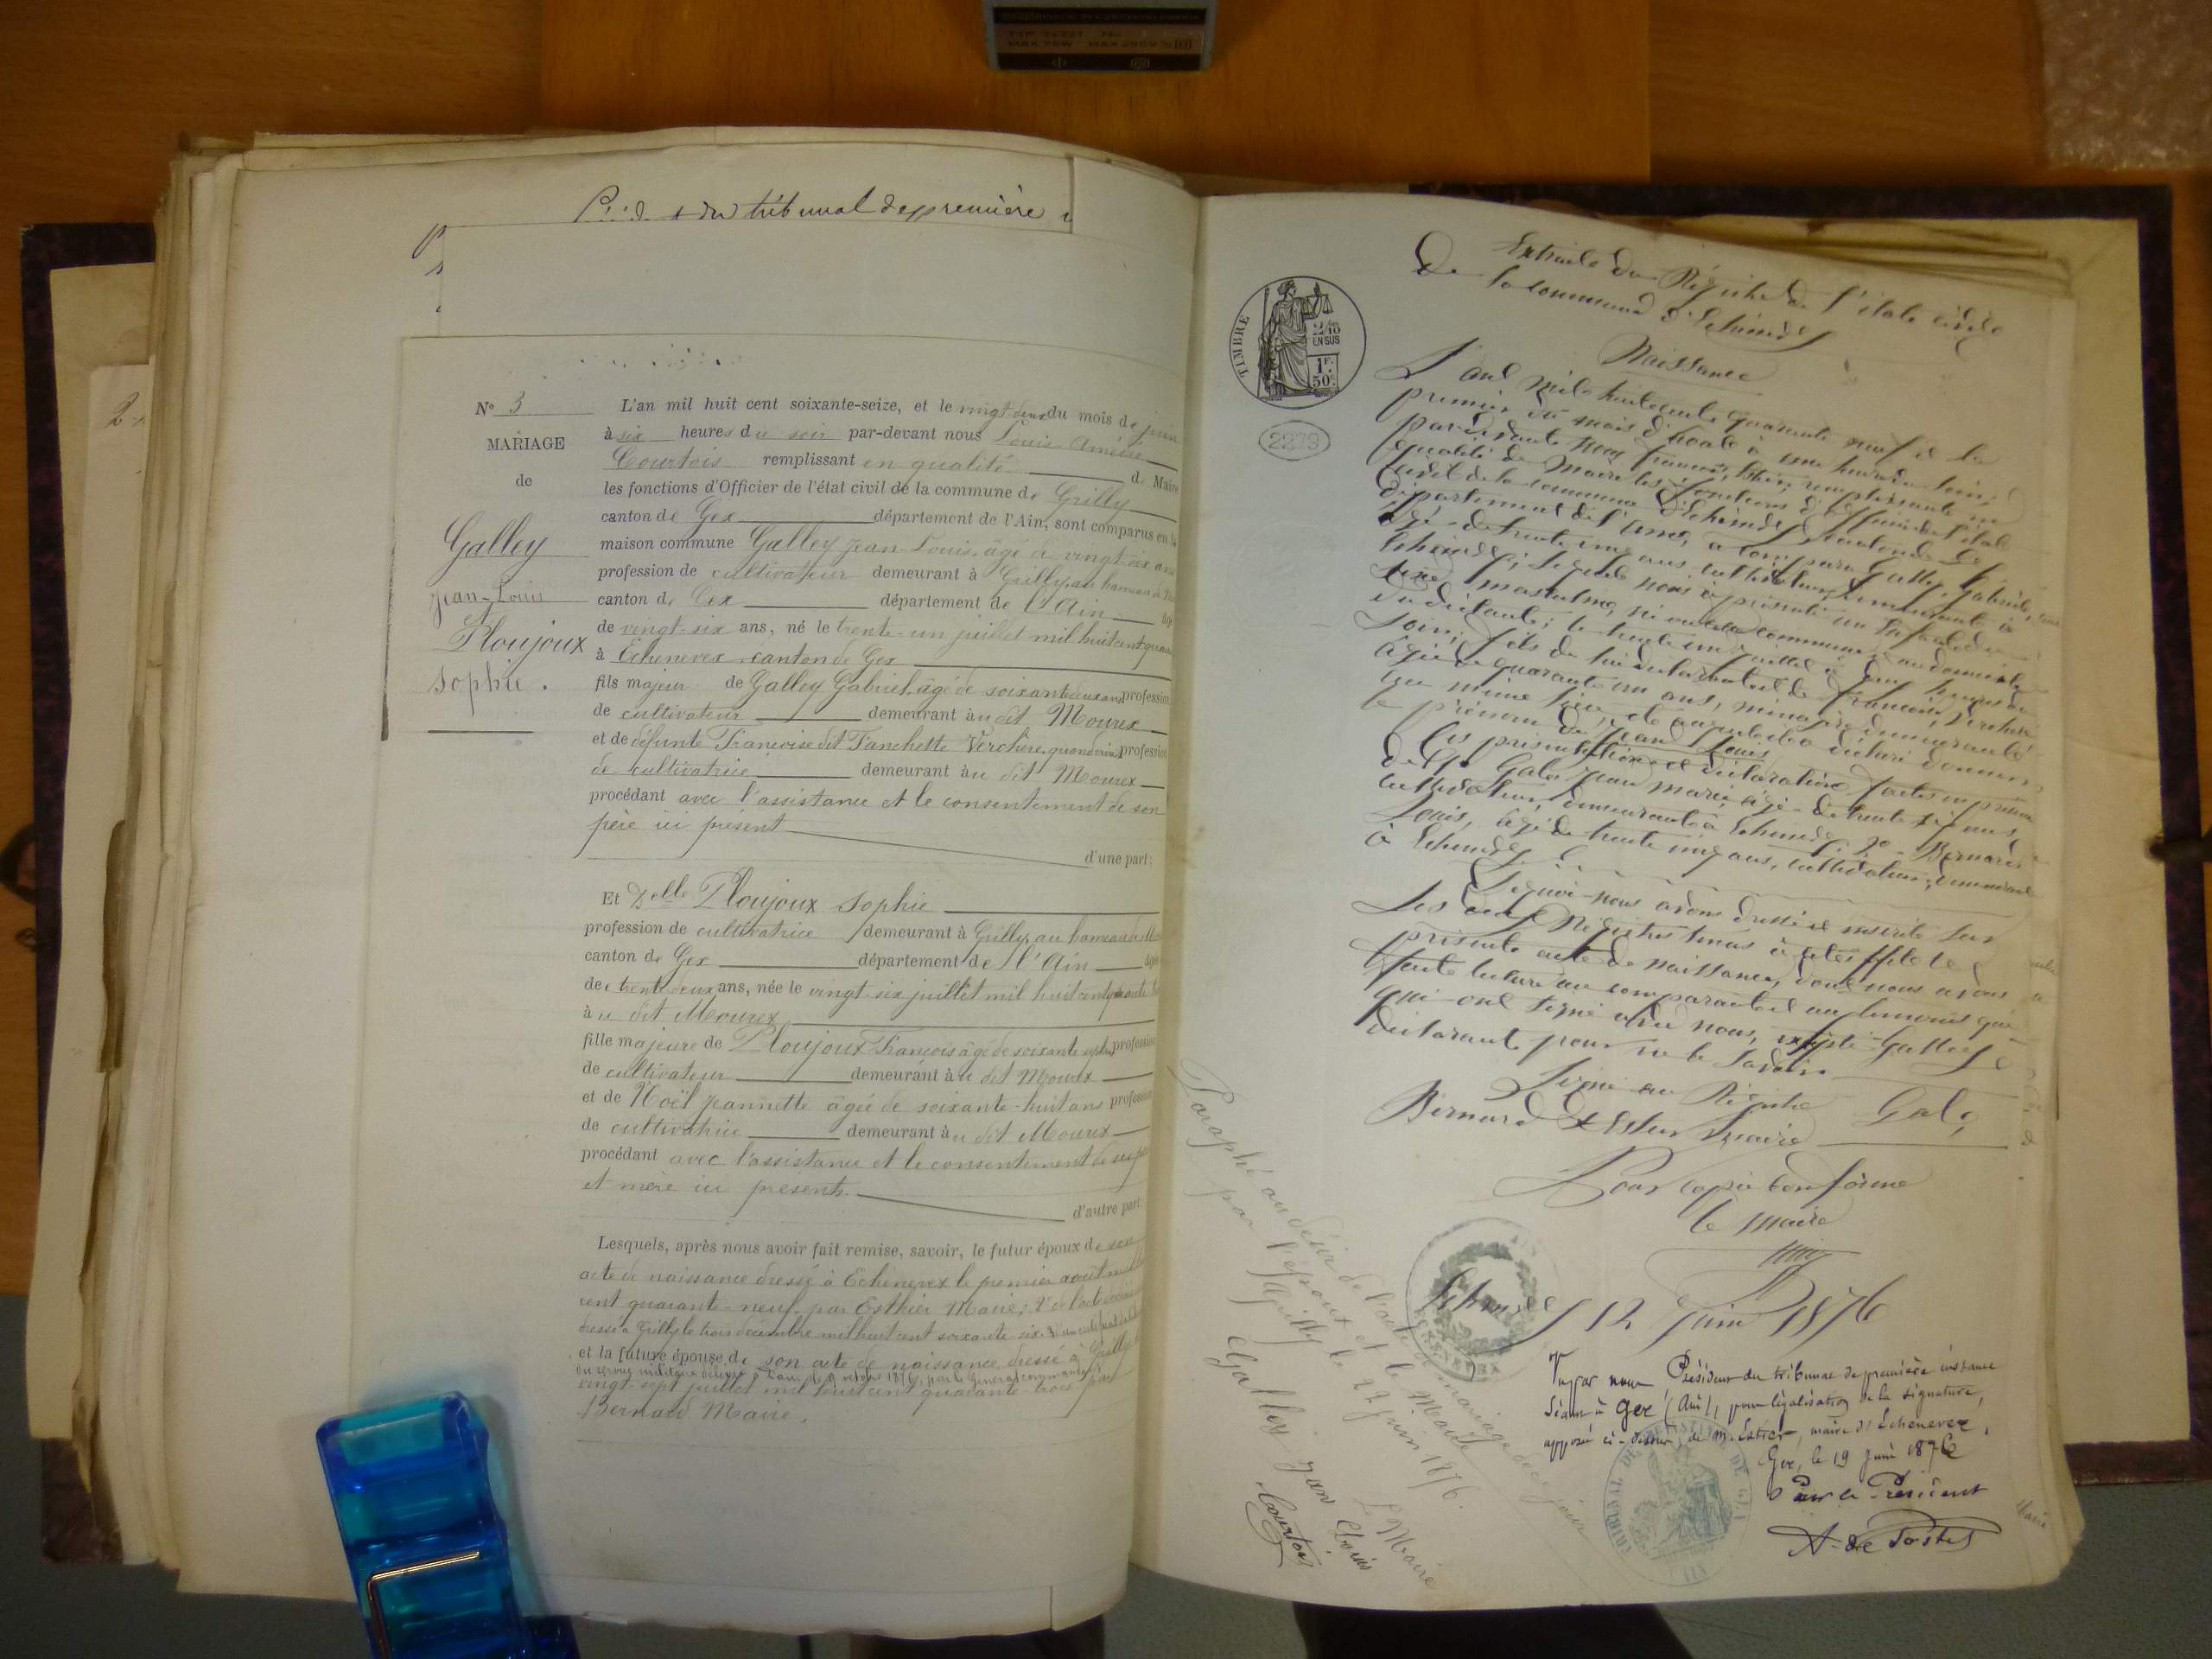 du tribunal de première
N° 3
MARIAGE
de
Galley
Jean-Louis
&
Ploujoux
Sophie.
L'an mil huit cent soixante-seize, et le vingt deux du mois de juin
à six heures du soir par-devant nous Louis Amédée
Courtois remplissant en qualité de Maire
les fonctions d'Officier de l'état civil de la commune de Grilly
canton de Gex département de l'Ain, sont comparus en la
maison commune Galley Jean-Louis, âgé de vingt-six ans
profession de cultivateur demeurant à Grilly, au hameau de
canton de Gex département de l'Ain
de vingt-six ans, né le trente-un juillet mil huit cent
à Echenevex canton de Gex
fils majeur de Galley Gabriel, âgé de soixante deux ans profession
de cultivateur demeurant au dit Mourex
et de défunte Françoise dit Fanchette Verchère, profession
de cultivatrice demeurant au dit Mourex
procédant avec l'assistance et le consentement de son
père ici présent
d'une part;
Et Delle Ploujoux Sophie
profession de cultivatrice demeurant à Grilly, au hameau de
canton de Gex département de l'Ain
de trente deux ans, née le vingt-six juillet mil huit cent
au dit Mourex
fille majeure de Ploujoux François âgé de soixante profession
de cultivateur demeurant au dit Mourex
et de Noël Jeannette âgée de soixante-huit ans profession
de cultivatrice demeurant au dit Mourex
procédant avec l'assistance et le consentement de ses père
et mère ici présents.
d'autre part.
Lesquels, après nous avoir fait remise, savoir, le futur époux de son
acte de naissance dressé à Echenevex le premier août mil
cent quarante-neuf, par Esthier Maire; 2° de l'acte
dressé à Grilly le trois décembre mil huit cent soixante six
et la future épouse de son acte de naissance dressé à Grilly
vingt-sept juillet mil huit cent quarante-trois par
Bernard Maire.
TIMBRE
2/10
EN SUS
1F.
50c.
2279
Extrait du Régistre de l'état civil
De la commune d'Echenevex
Naissance
L'an mil huit cent quarante neuf et le
premier du mois d'août à une heure du soir,
par devant nous François Esthier, remplissant en
qualité de Maire les fonctions d'officier de l'état
civil de la commune d'Echenevex, canton de Gex
département de l'ain, a comparu Galley Gabriel,
âgé de trente cinq ans cultivateur, demeurant à
Echenevex; lequel nous à présenté un enfant du
sexe masculin, né en cette commune, au domicile
du déclarant; le trente un juillet à heures du
soir, fils de lui déclarant et de Françoise Verchère
âgée de quarante un ans, ménagère, demeurant
au même lieu, et auquel il a déclaré donner
le prénom de Jean Louis
Les présentation et déclaration faites en présence
de 1° Galy jean marie, âgé de trente ans,
cultivateur, demeurant à Echenevex, 2° Bernard
Louis, âgé de trente cinq ans, cultivateur, demeurant
à Echenevex.
De quoi nous avons dressé et inscrit sur
les deux Régistres tenus à cet effet le
présent acte de naissance, dont nous avons
fait lecture au comparant et aux témoins qui
qui ont signé avec nous, excepté Galley
déclarant pour ne le savoir
Signé au Régistre Galy,
Bernard & Esthier maire
Pour copie conforme
le maire
Echenevex 12 Juin 1876
Vu par nous Président du tribunal de première instance
séant à Gex (Ain), pour légalisation de la signature,
apposée ci-dessus, de M. Estier, maire d'Echenevex,
Gex, le 19 Juin 1876
Pour le Président
Paraphé au désir de l'acte de mariage de ce jour
par l'époux et le Maire
Grilly le 22 juin 1876.
Le Maire
Galley jean Louis
Courtois